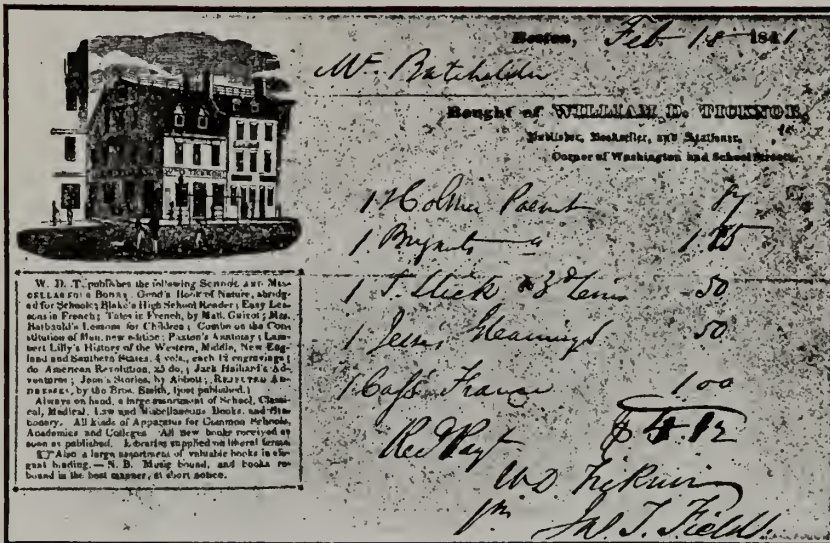 Boston, Feb 18 1841
Mr. Batchelder
Bought of WILLIAM D. TICKNOR,
Publisher, Bookseller, and Stationer,
Corner of Washington and School Streets.
1 Holmes Poems 87
1 Bryants " 1 25
1 S. Slick 3d 50
1 Gleanings 50
1 Cass' France 1.00
$4.12
Recd Payt
W. D. Ticknor
Jas. T. Fields.
W. D. T. publishes the following SCHOOL AND MIS-
CELLANEOUS BOOKS. Good's Book of Nature, abridg-
ed for Schools; Blake's High School Reader; Easy Les-
sons in French; Tales in French, by Mad. Guizot; Mrs.
Barbauld's Lessons for Children; Combe on the Cons-
titution of Man, new edition; Paxton's Anatomy; Lam-
bert Lilly's History of the Western, Middle, New Eng-
land and Southern States, 4 vols., each 12 engravings;
do. American Revolution, 25 do.; Jack Halliard's Ad-
ventures; Stories, by Abbott; REJECTED AD-
DRESSES, by the Bros. Smith, (just published.)
Always on hand, a large assortment of School, Classi-
cal, Medical, Law and Miscellaneous Books, and Sta-
tionery. All kinds of Apparatus for Common Schools,
Academies and Colleges. All new books received as
soon as published. Libraries supplied on liberal terms.
Also a large assortment of valuable books in ele-
gant binding. — N. B. Music bound, and books re-
bound in the best manner, at short notice.